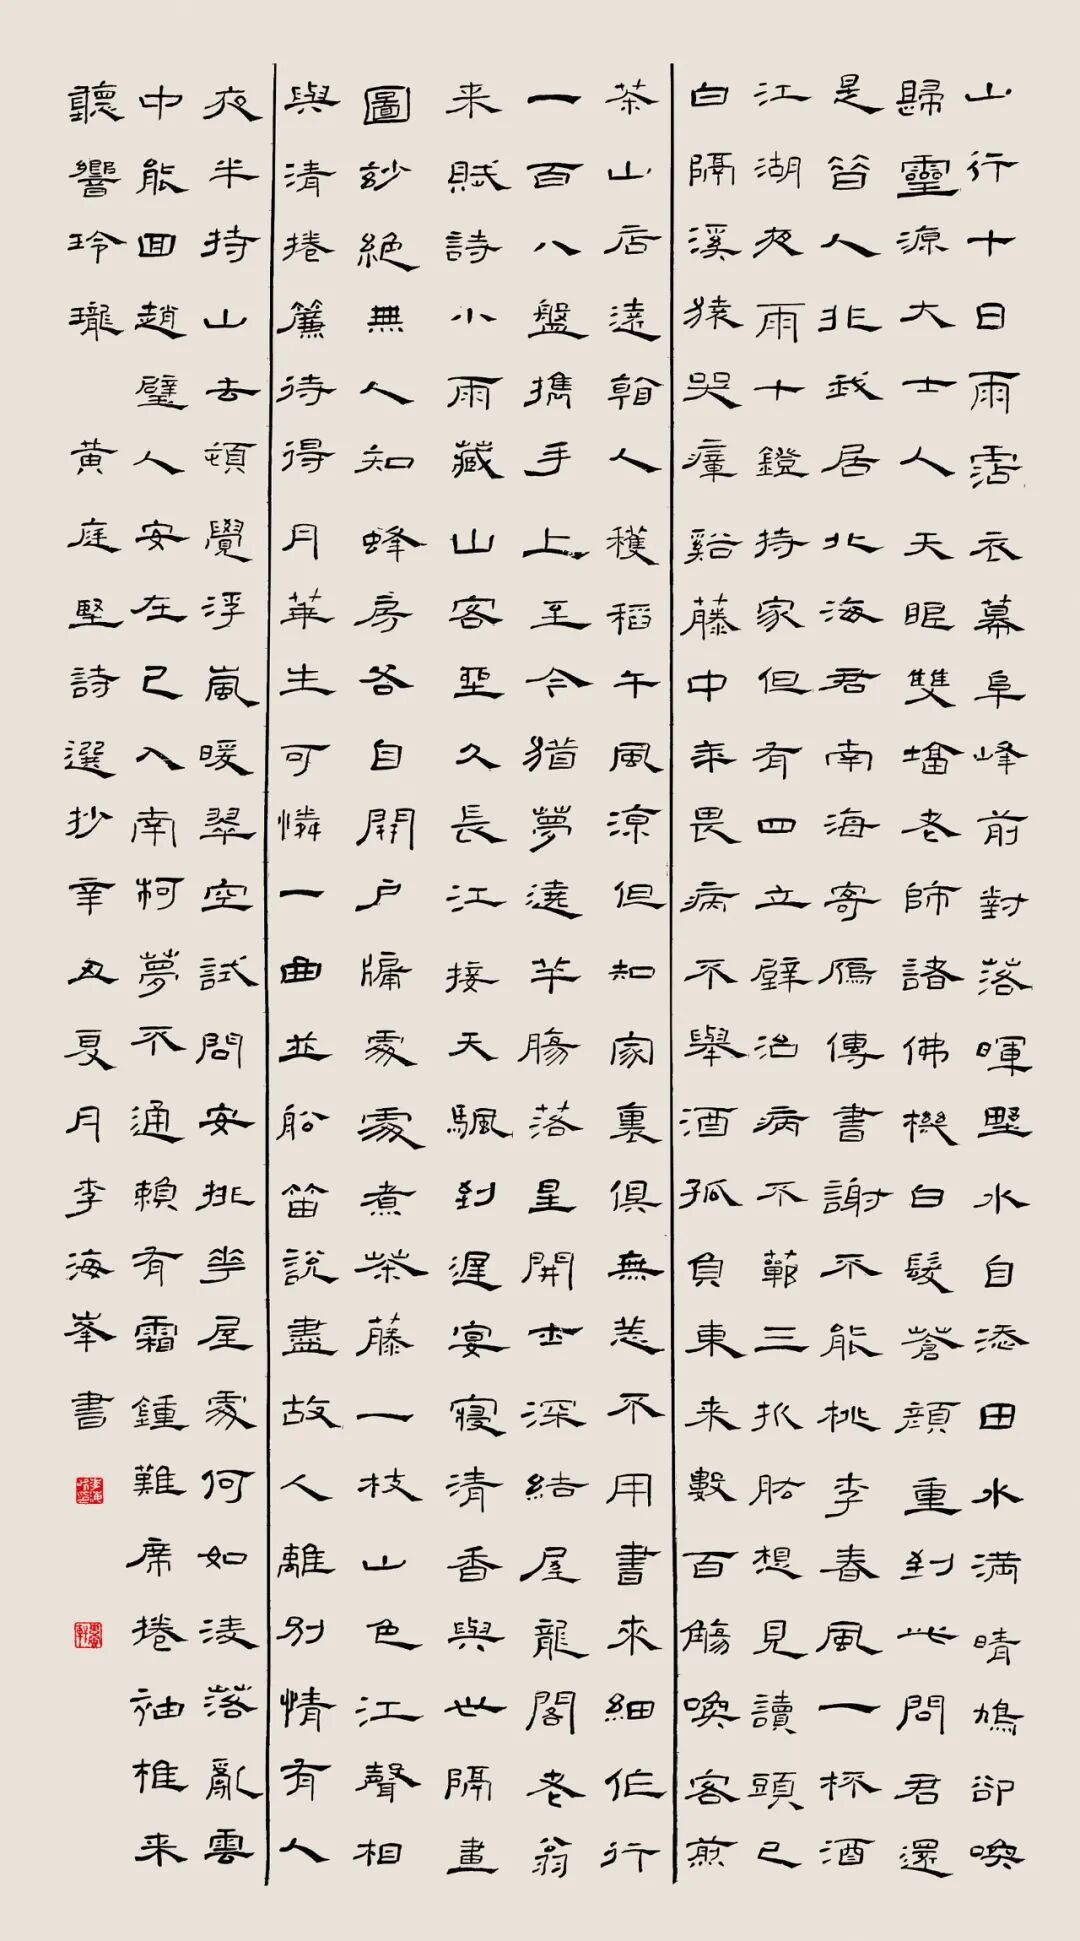 山行十日雨霑衣幕阜峰前對落暉野水自添田水満晴鳩卻喚
歸靈源大士人天眼雙塔老師諸佛機白髮蒼顏重到此問君還
是昔人非我居北海君南海寄鴈傳書謝不能桃李春風一杯酒
江湖夜雨十鐙持家但有四立壁治病不蘄三折肱想見讀頭已
白隔溪猿哭瘴谿藤中年畏病不舉酒孤負東来數百觴喚客煎
茶山店遠看人穫稻午風涼但知家裏俱無恙不用書來細作行
一百八盤攜手上至今猶夢遶羊腸落星開士深結屋龍閣老翁
来賦詩小雨藏山客坐久長江接天颿到遲宴寢清香與世隔畫
圖妙絕無人知蜂房各自開户牖處處煮茶藤一枝山色江聲相
與清捲簾待得月華生可憐一曲並船笛說盡故人離別情有人
夜半持山去頓覺浮嵐暖翠空試問安排華屋處何如淩落亂雲
中能回趙璧人安在已入南柯夢不通賴有霜鍾難席捲袖椎来
聽響玲瓏 黄庭堅詩選抄辛丑夏月李海峯書